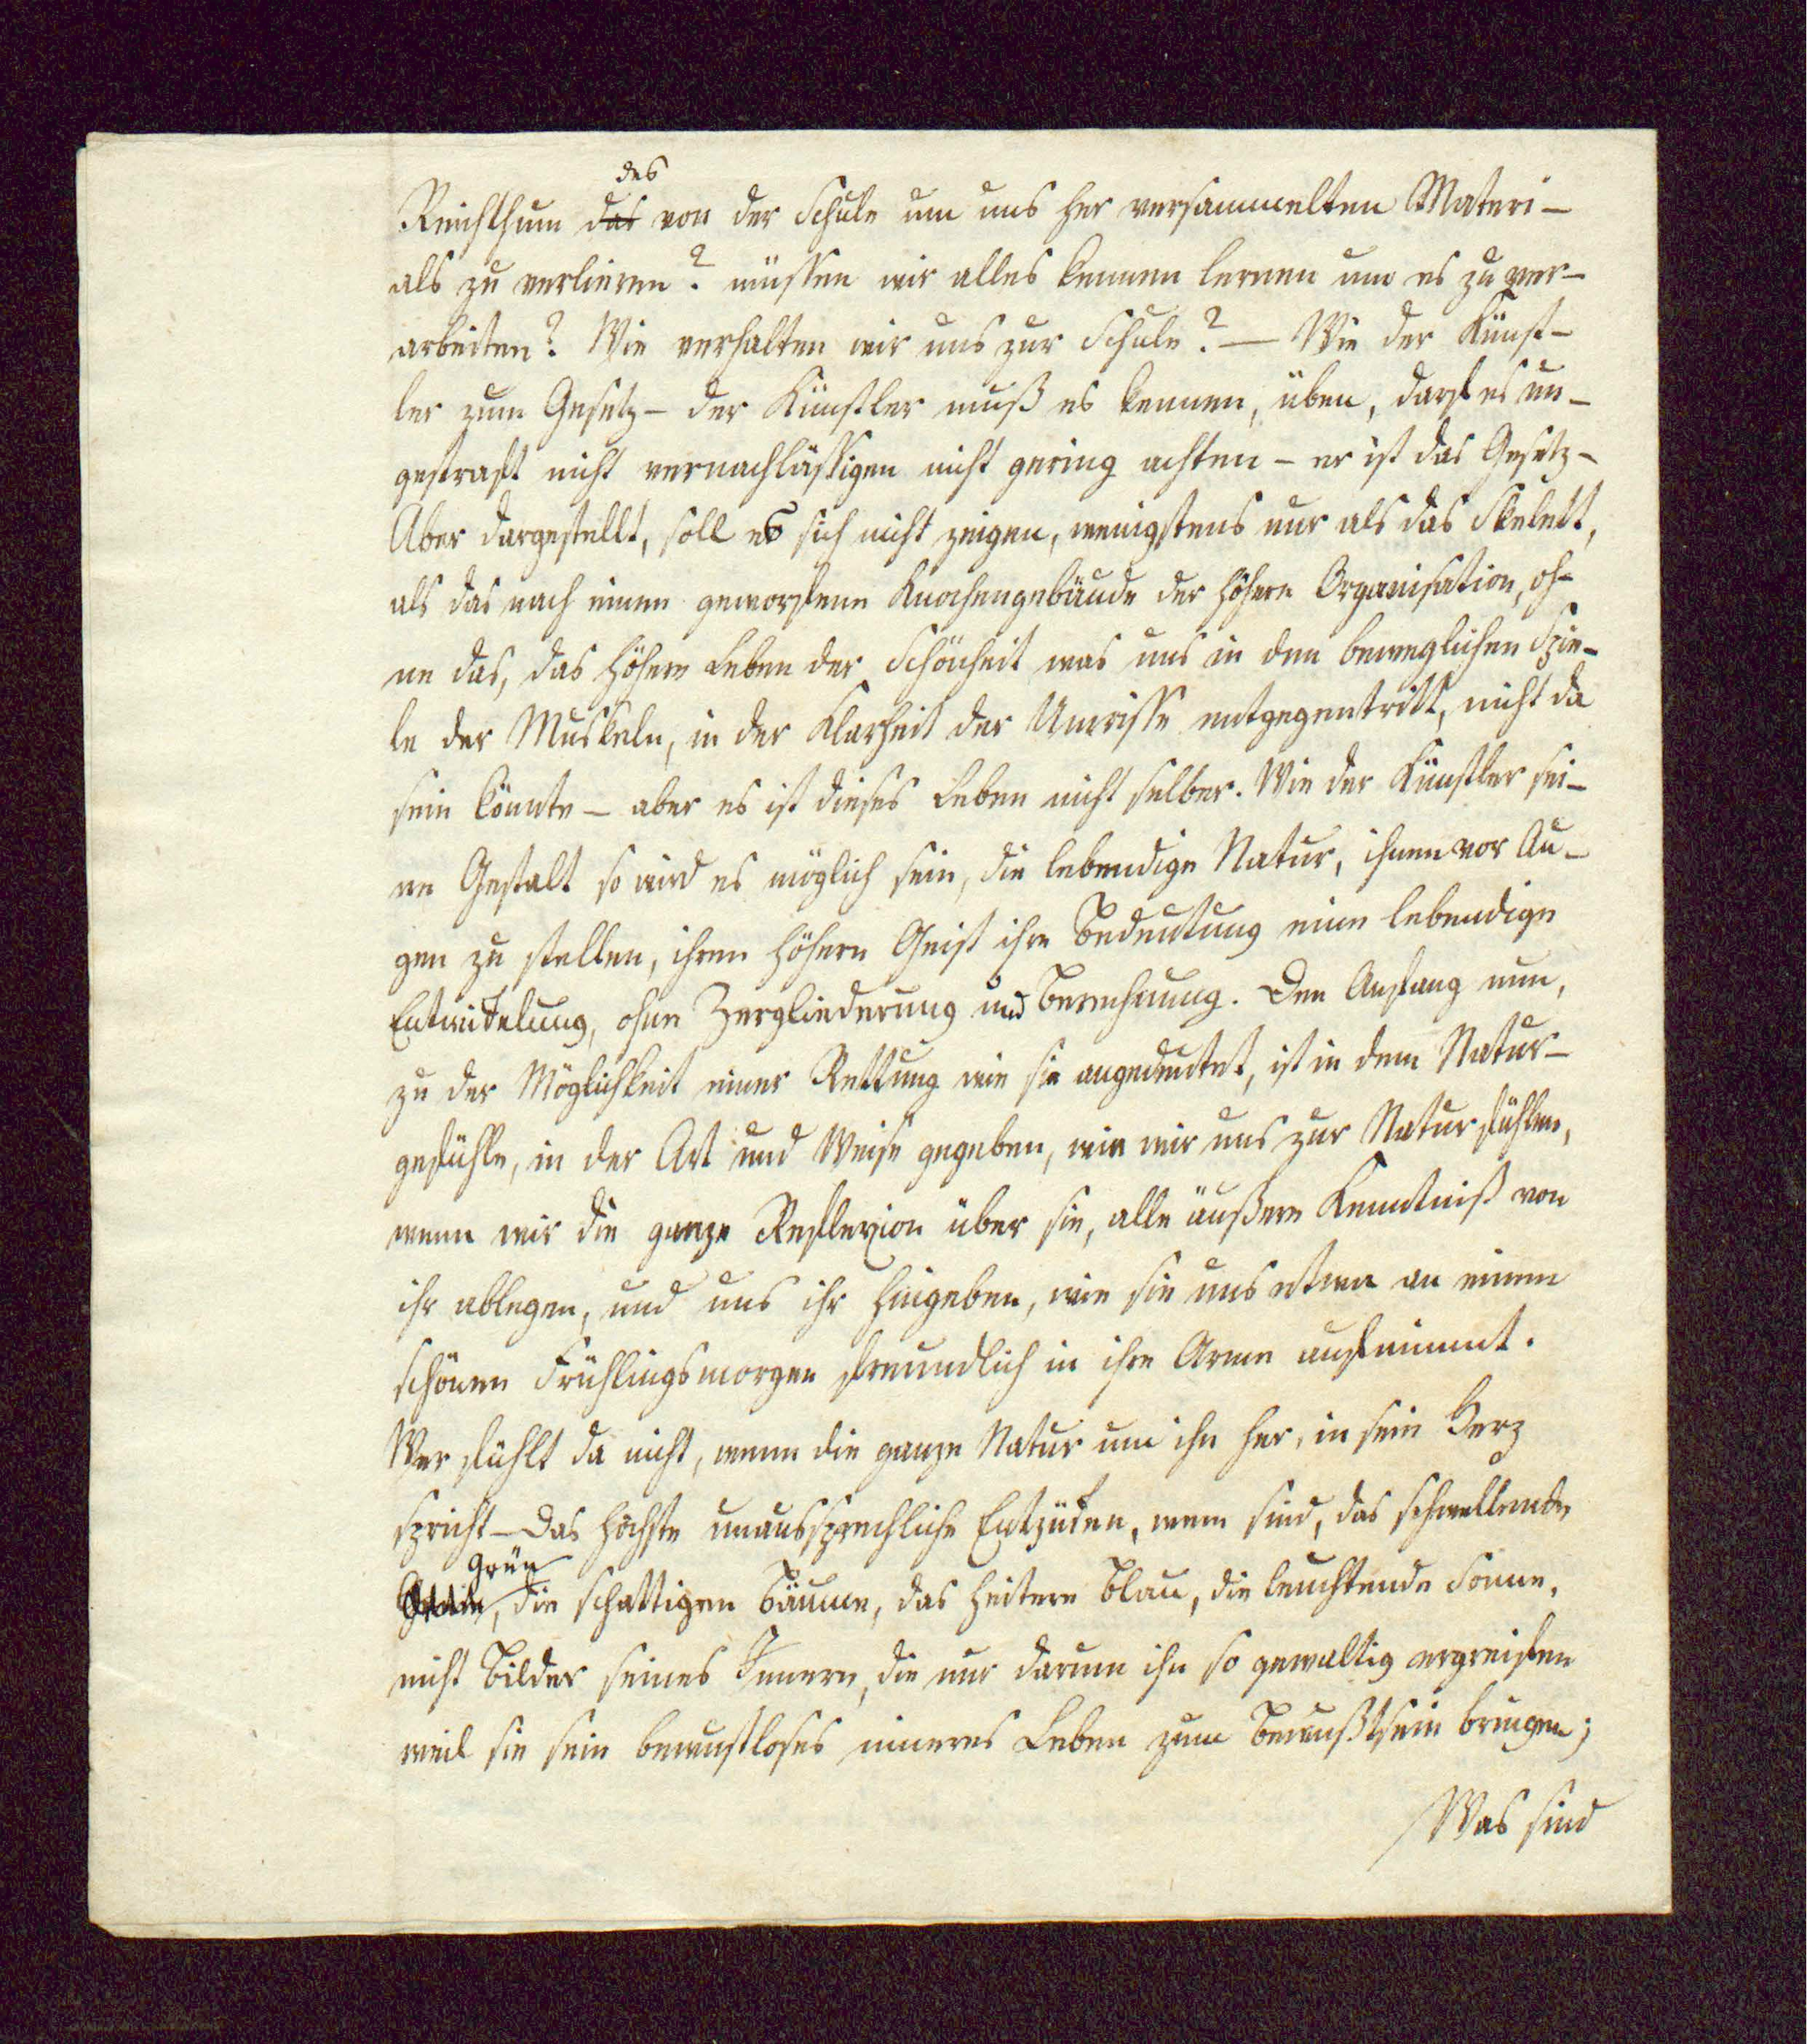 des
Reichthum das von der Schule um uns her versammelten Materi-
als zu verlieren? müssen wir alles kennen lernen um es zu ver-
arbeiten? Wie verhalten wir uns zur Schule? — Wie der Künst-
ler zum Gesetz – der Künstler muß es kennen, üben, darf es un-
gestraft nicht vernachlässigen nicht gering achten – er ist das Gesetz –
Aber dargestellt, soll es sich nicht zeigen, wenigstens nur als das Skelett,
als das nach innen geworfene Knochengebäude der höhern Organisation, oh-
ne das, das höhere Leben der Schönheit was uns in dem beweglichen Spie-
le der Muskeln, in der Klarheit der Umrisse entgegentritt, nicht da
sein könnte – aber es ist dieses Leben nicht selber. Wie der Künstler sei-
ne Gestalt so wird es möglich sein, die lebendige Natur, ihnen vor Au-
gen zu stellen, ihren höhern Geist ihre Bedeutung eine lebendige
Entwickelung, ohne Zergliederung und Berechnung. Den Anfang nun,
zu der Möglichkeit einer Rettung wie sie angedeutet, ist in dem Natur-
gefühle, in der Art und Weise gegeben, wie wir uns zur Natur fühlen,
wenn wir die ganze Reflexion über sie, alle äußere Kenntniß von
ihr ablegen, und uns ihr hingeben, wie sie uns etwa an einem
schönen Frühlingsmorgen freundlich in ihre Arme aufnimmt.
Wer fühlt da nicht, wenn die ganze Natur um ihn her, in sein Herz
spricht – das höchste unaussprechliche Entzücken, wem sind, das schwellende
Grün
, die schattigen Bäume, das heitere Blau, die leuchtende Sonne,
nicht Bilder seines Innern, die nur darum ihn so gewaltig ergreifen
weil sie sein bewustloses inneres Leben zum Bewußtsein bringen;
Was sind